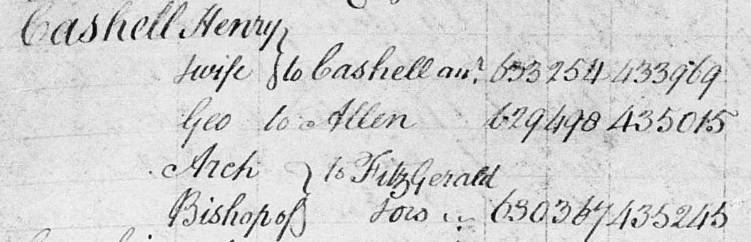 Cashell Henry
wife } to Cashell anr. 633 254 433969
Geo to Allen 629 498 435015
Arch } to FitzGerald
Bishop of 630 367 435245